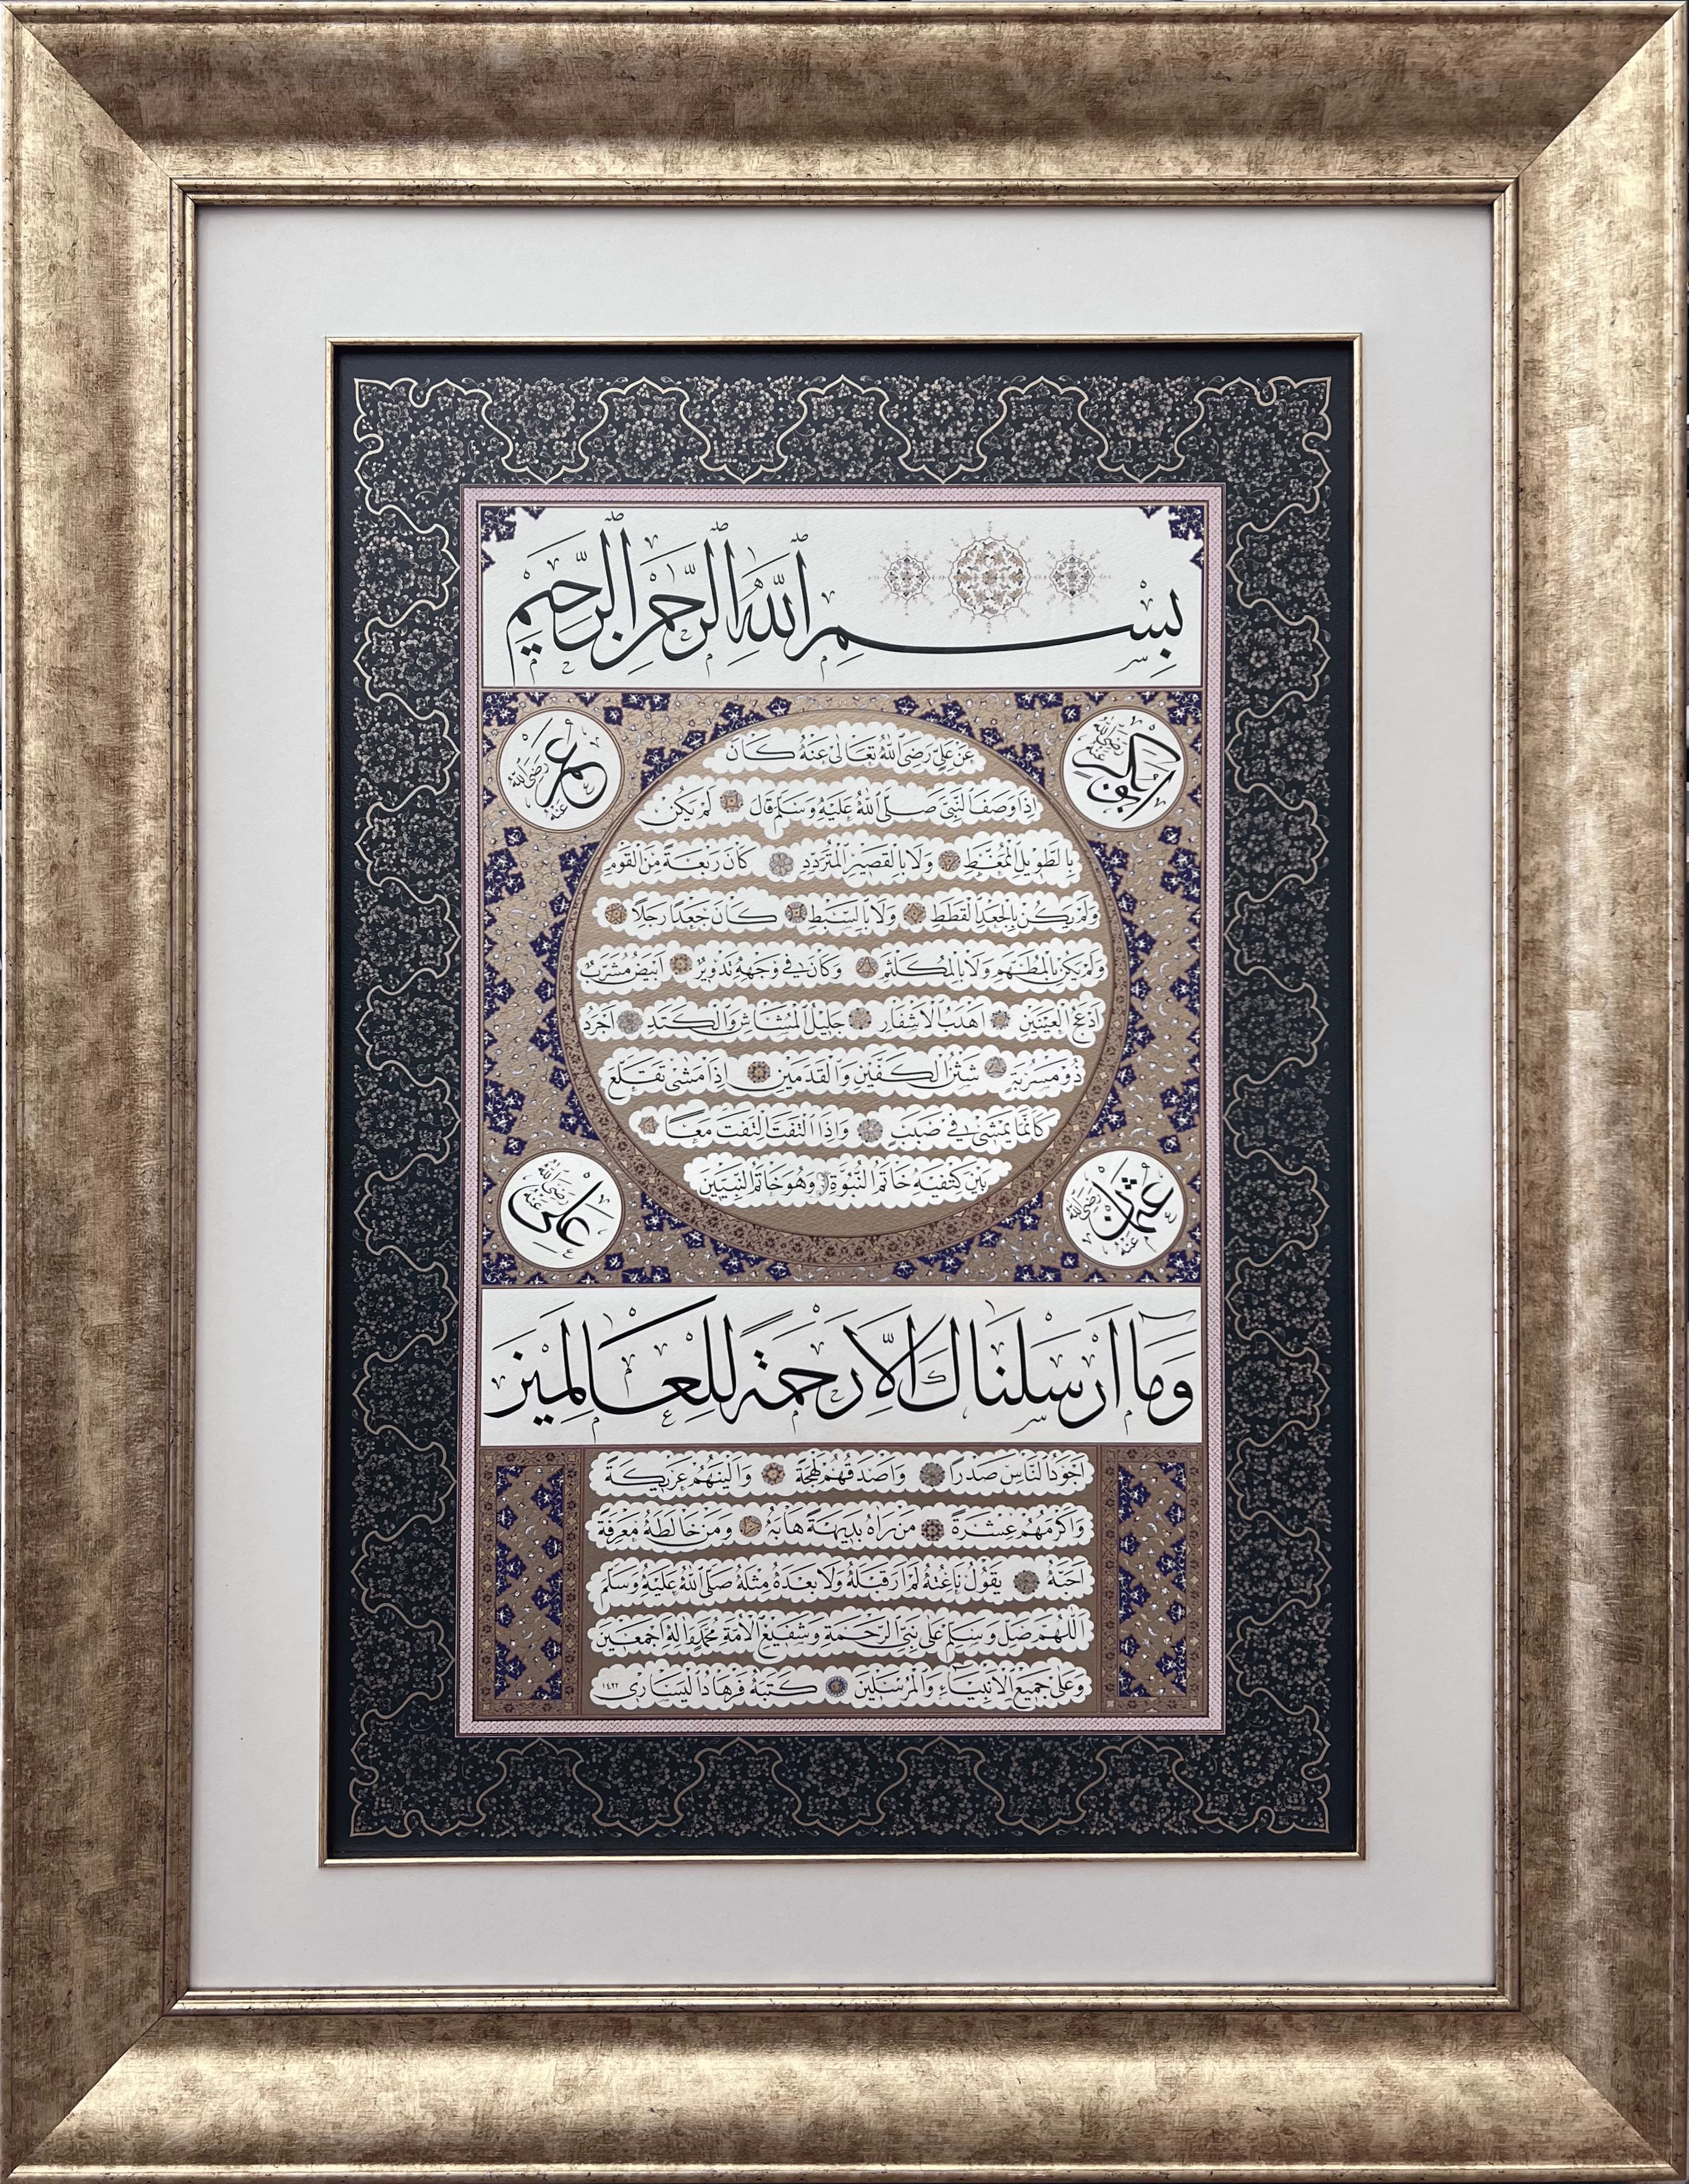 بِسْمِ اللّٰهِ الرَّحْمٰنِ الرَّحِيمِ
ابو بكر رضى الله عنه
عمر رضى الله عنه
عَنْ عَلِيٍّ رَضِىَ اللّٰهُ تَعَالٰى عَنْهُ كَانَ
اِذَا وَصَفَ النَّبِىَّ صَلَّى اللّٰهُ عَلَيْهِ وَسَلَّمَ قَالَ لَمْ يَكُنْ
بِالطَّوِيلِ الْمُمَّغِطِ وَلَا بِالْقَصِيرِ الْمُتَرَدِّدِ كَانَ رَبْعَةً مِنَ الْقَوْمِ
وَلَمْ يَكُنْ بِالْجَعْدِ الْقَطَطِ وَلَا بِالسَّبْطِ كَانَ جَعْدًا رَجِلًا
وَلَمْ يَكُنْ بِالْمُطَهَّمِ وَلَا بِالْمُكَلْثَمِ وَكَانَ فِى وَجْهِهِ تَدْوِيرٌ اَبْيَضُ مُشْرَبٌ
اَدْعَجُ الْعَيْنَيْنِ اَهْدَبُ الْاَشْفَارِ جَلِيلُ الْمُشَاشِ وَالْكَتَدِ اَجْرَدُ
ذُو مَسْرُبَةٍ شَثْنُ الْكَفَّيْنِ وَالْقَدَمَيْنِ اِذَا مَشٰى تَقَلَّعَ
كَاَنَّمَا يَمْشِى فِى صَبَبٍ وَاِذَا الْتَفَتَ الْتَفَتَ مَعًا
بَيْنَ كَتِفَيْهِ خَاتَمُ النُّبُوَّةِ وَهُوَ خَاتَمُ النَّبِيِّينَ
عثمان رضى الله عنه
على رضى الله عنه
وَمَا اَرْسَلْنَاكَ اِلَّا رَحْمَةً لِلْعَالَمِينَ
اَجْوَدُ النَّاسِ صَدْرًا وَاَصْدَقُهُمْ لَهْجَةً وَاَلْيَنُهُمْ عَرِيكَةً
وَاَكْرَمُهُمْ عِشْرَةً مَنْ رَاٰهُ بَدِيهَةً هَابَهُ وَمَنْ خَالَطَهُ مَعْرِفَةً
اَحَبَّهُ يَقُولُ نَاعِتُهُ لَمْ اَرَ قَبْلَهُ وَلَا بَعْدَهُ مِثْلَهُ صَلَّى اللّٰهُ عَلَيْهِ وَسَلَّمَ
اَللّٰهُمَّ صَلِّ وَسَلِّمْ عَلٰى نَبِىِّ الرَّحْمَةِ وَشَفِيعِ الْاُمَّةِ مُحَمَّدٍ وَاٰلِهِ اَجْمَعِينَ
وَعَلٰى جَمِيعِ الْاَنْبِيَاءِ وَالْمُرْسَلِينَ كَتَبَهُ فَرْهَادُ الْيَسَارِى ١٤٢٢